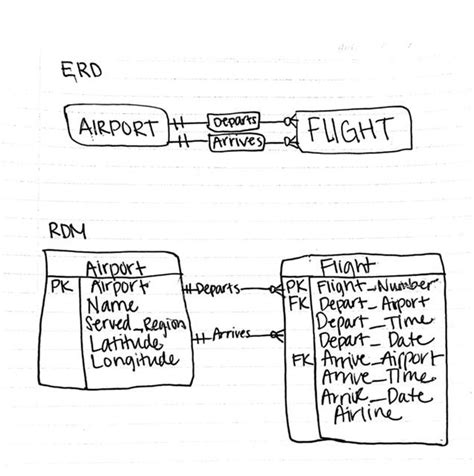 ERD
AIRPORT Departs FLIGHT
Arrives
RDM
Airport
PK Airport
Name
Served_Region
Latitude
Longitude
Departs
Arrives
Flight
PK Flight_Number
FK Depart_Airport
Depart_Time
Depart_Date
FK Arrive_Airport
Arrive_Time
Arrive_Date
Airline